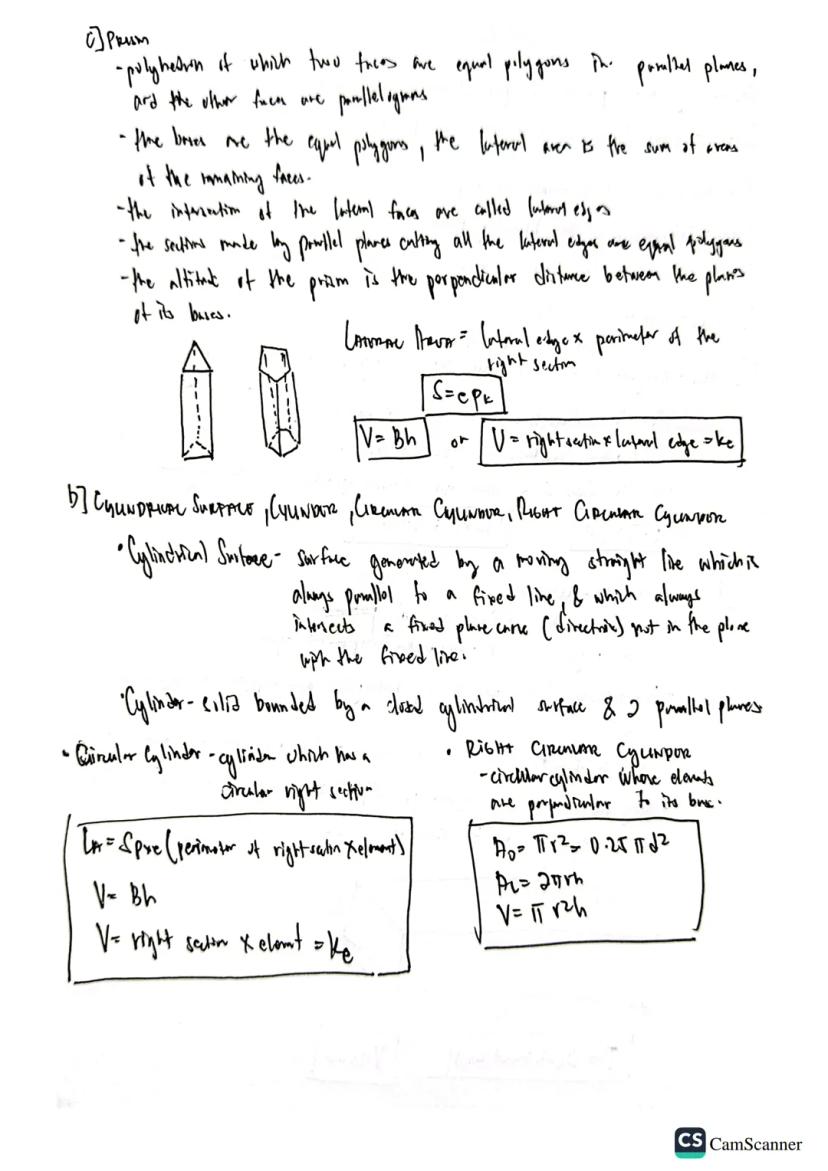 c] Prism
- polyhedron of which two faces are equal polygons in parallel planes,
and the other faces are parallelograms
- the bases are the equal polygons, the lateral area is the sum of areas
of the remaining faces.
- the intersection of the lateral faces are called lateral edges
- the sections made by parallel planes cutting all the lateral edges are equal polygons
- the altitude of the prism is the perpendicular distance between the planes
of its bases.
LATERAL AREA = lateral edge x perimeter of the
right section
S=ePk
V=Bh or V= right section x lateral edge = Ke
b] CYLINDRICAL SURFACE, CYLINDER, CIRCULAR CYLINDER, RIGHT CIRCULAR CYLINDER
• Cylindrical Surface - surface generated by a moving straight line which is
always parallel to a fixed line, & which always
intersects a fixed plane curve (directrix) not in the plane
with the fixed line.
• Cylinder - solid bounded by a closed cylindrical surface & 2 parallel planes
• Circular Cylinder - cylinder which has a
circular right section
LA = Spxe (perimeter of right section x element)
V= Bh
V= right section x element = Ke
• RIGHT CIRCULAR CYLINDER
- circular cylinder whose elements
are perpendicular to its base.
Ao= πr²= 0.25 πd²
AL= 2πrh
V= π r²h
CS CamScanner